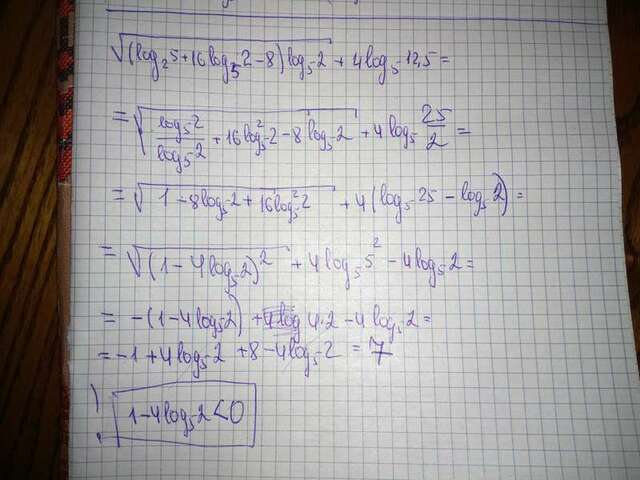 √(log₂5 + 16log₅2 - 8)log₅2 + 4log₅12,5 =
= √log₅2/log₅2 + 16log₅²2 - 8log₅2 + 4log₅ 25/2 =
= √1 - 8log₅2 + 16log₅²2 + 4(log₅25 - log₅2) =
= √(1 - 4log₅2)² + 4log₅5² - 4log₅2 =
= -(1 - 4log₅2) + 4·2 - 4log₅2 =
= -1 + 4log₅2 + 8 - 4log₅2 = 7
1 - 4log₅2 < 0